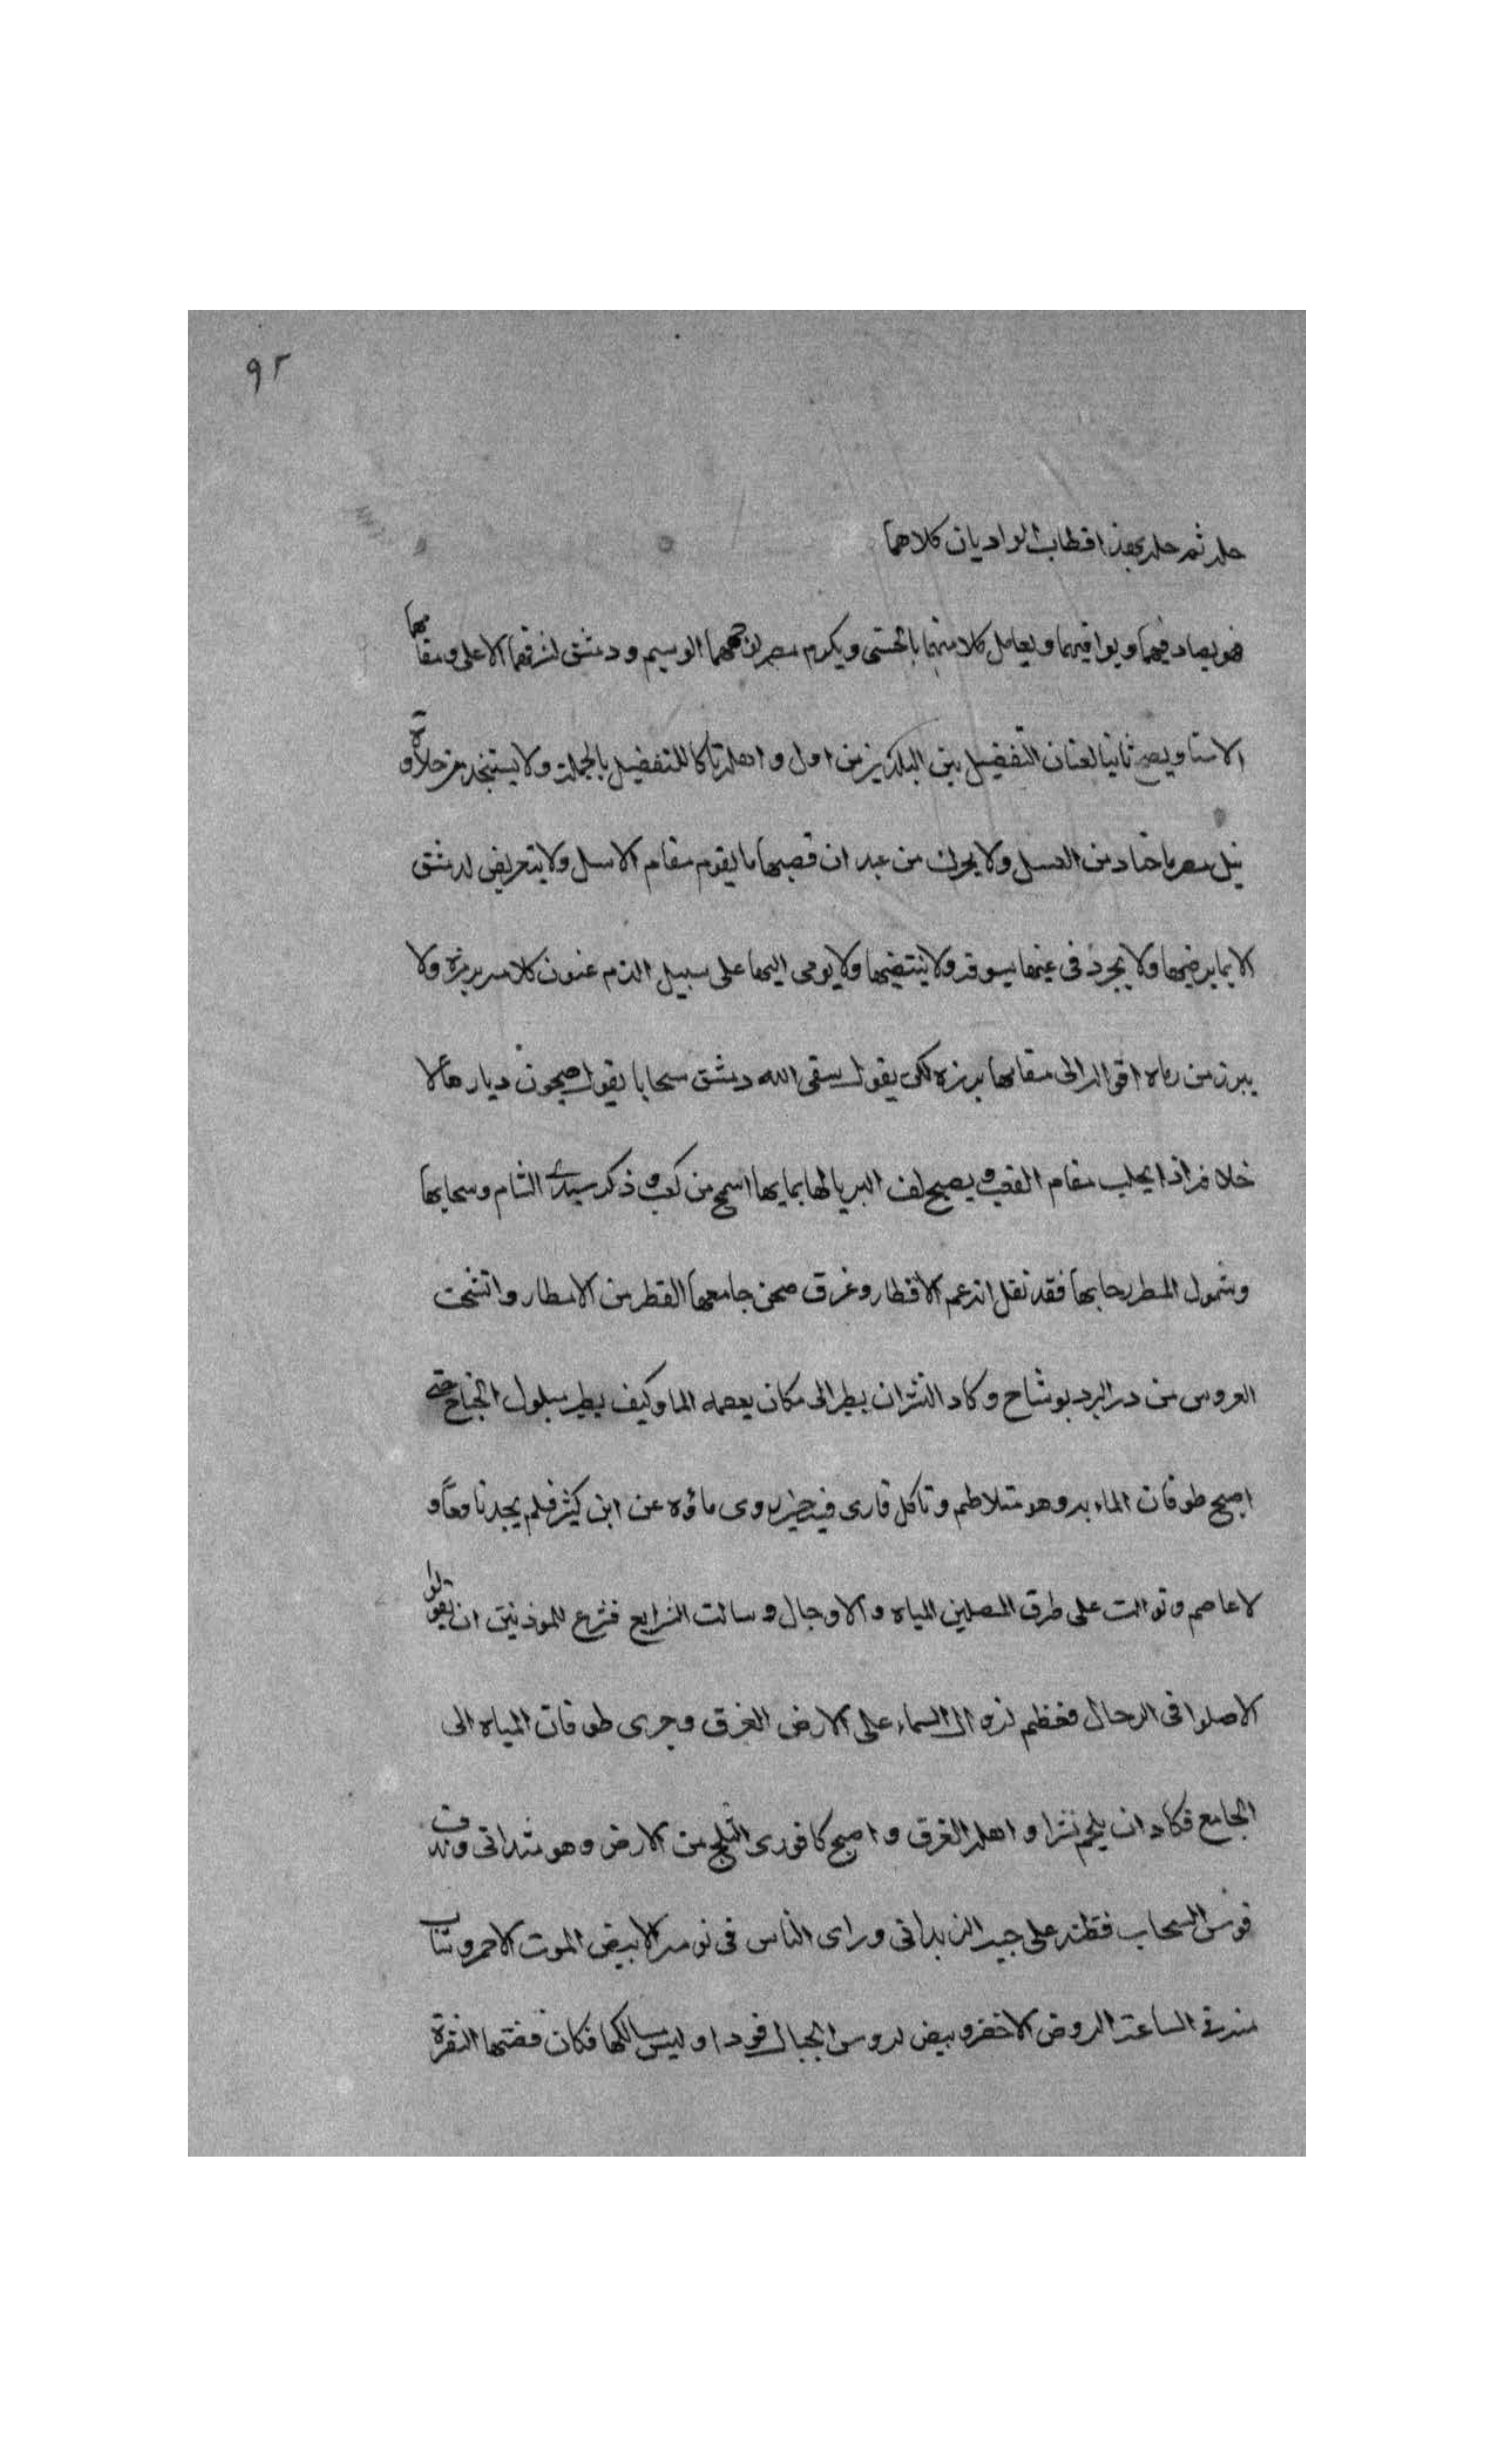 ٩٢
حله ثم حله بهذا فطاب الواديان كلاهما
فهو يصادفهما ويوافيهما ويعامل كلا منهما بالحسنى ويكرم مصر لوجهها الوسيم ودمشق لشرفها الاعلى ومقامها
الاسنا ويصح ثانيا لعنان التفضيل بين البلدين من اول واهله تاركا للتفضيل بالجملة ولا يستنجد من حلاوة
نيل مصر باحاد من العسل ولا يحرك من عيدان قصبها ما يقوم مقام الاسل ولا يتعرض لدمشق
الا بما يرضيها ولا يجرد في غيها سوقه ولا ينتضيها ولا يومى اليها على سبيل الذم عنون كلامه برمزه ولا
يبرز من رماه اقواله الى مقامها برزه لكى يقول سقى الله دمشق سحابا يقول صيحون ديارها لا
خلا فراذا يحلب مقام القصب ويصبح لف البريا لها بمايها اسمح من كعب وذكر سيدى الشام وسحابها
وشمول المطر رحابها فقد نقل انه عم الاقطار وغرق صحن جامعها القطر من الامطار واتشحت
العروس من در البرد بوشاح وكاد النسران يطير الى مكان يعصمه الما وكيف يطير مبلول الجناح حتى
اصبح طوفان الماء به وهو متلاطم وتاكل قارى فيه حيز يروى ماؤه عن ابن كثير فلم يجد نافعا و
لا عاصم وتوالت على طرق المصلين المياه والاوجال وسالت الشرايع فشرع للموذنين ان يقولوا
الا صلوا في الرحال فعظم نزوال السماء على الارض الغرق وجرى طوفان المياه الى
الجامع فكاد ان يلجم نسرا واهله الغرق واصبح كافورى الثلج من الارض وهو متدانى وندف
قوس السحاب قطنه على جيد الزبدانى وراى الناس في نومه الابيض الموت الاحمر وشاب
منه في الساعة الروض الاخضر وبيض لروس الجبال فودا وليس سالكها فكان فضتها النقرة